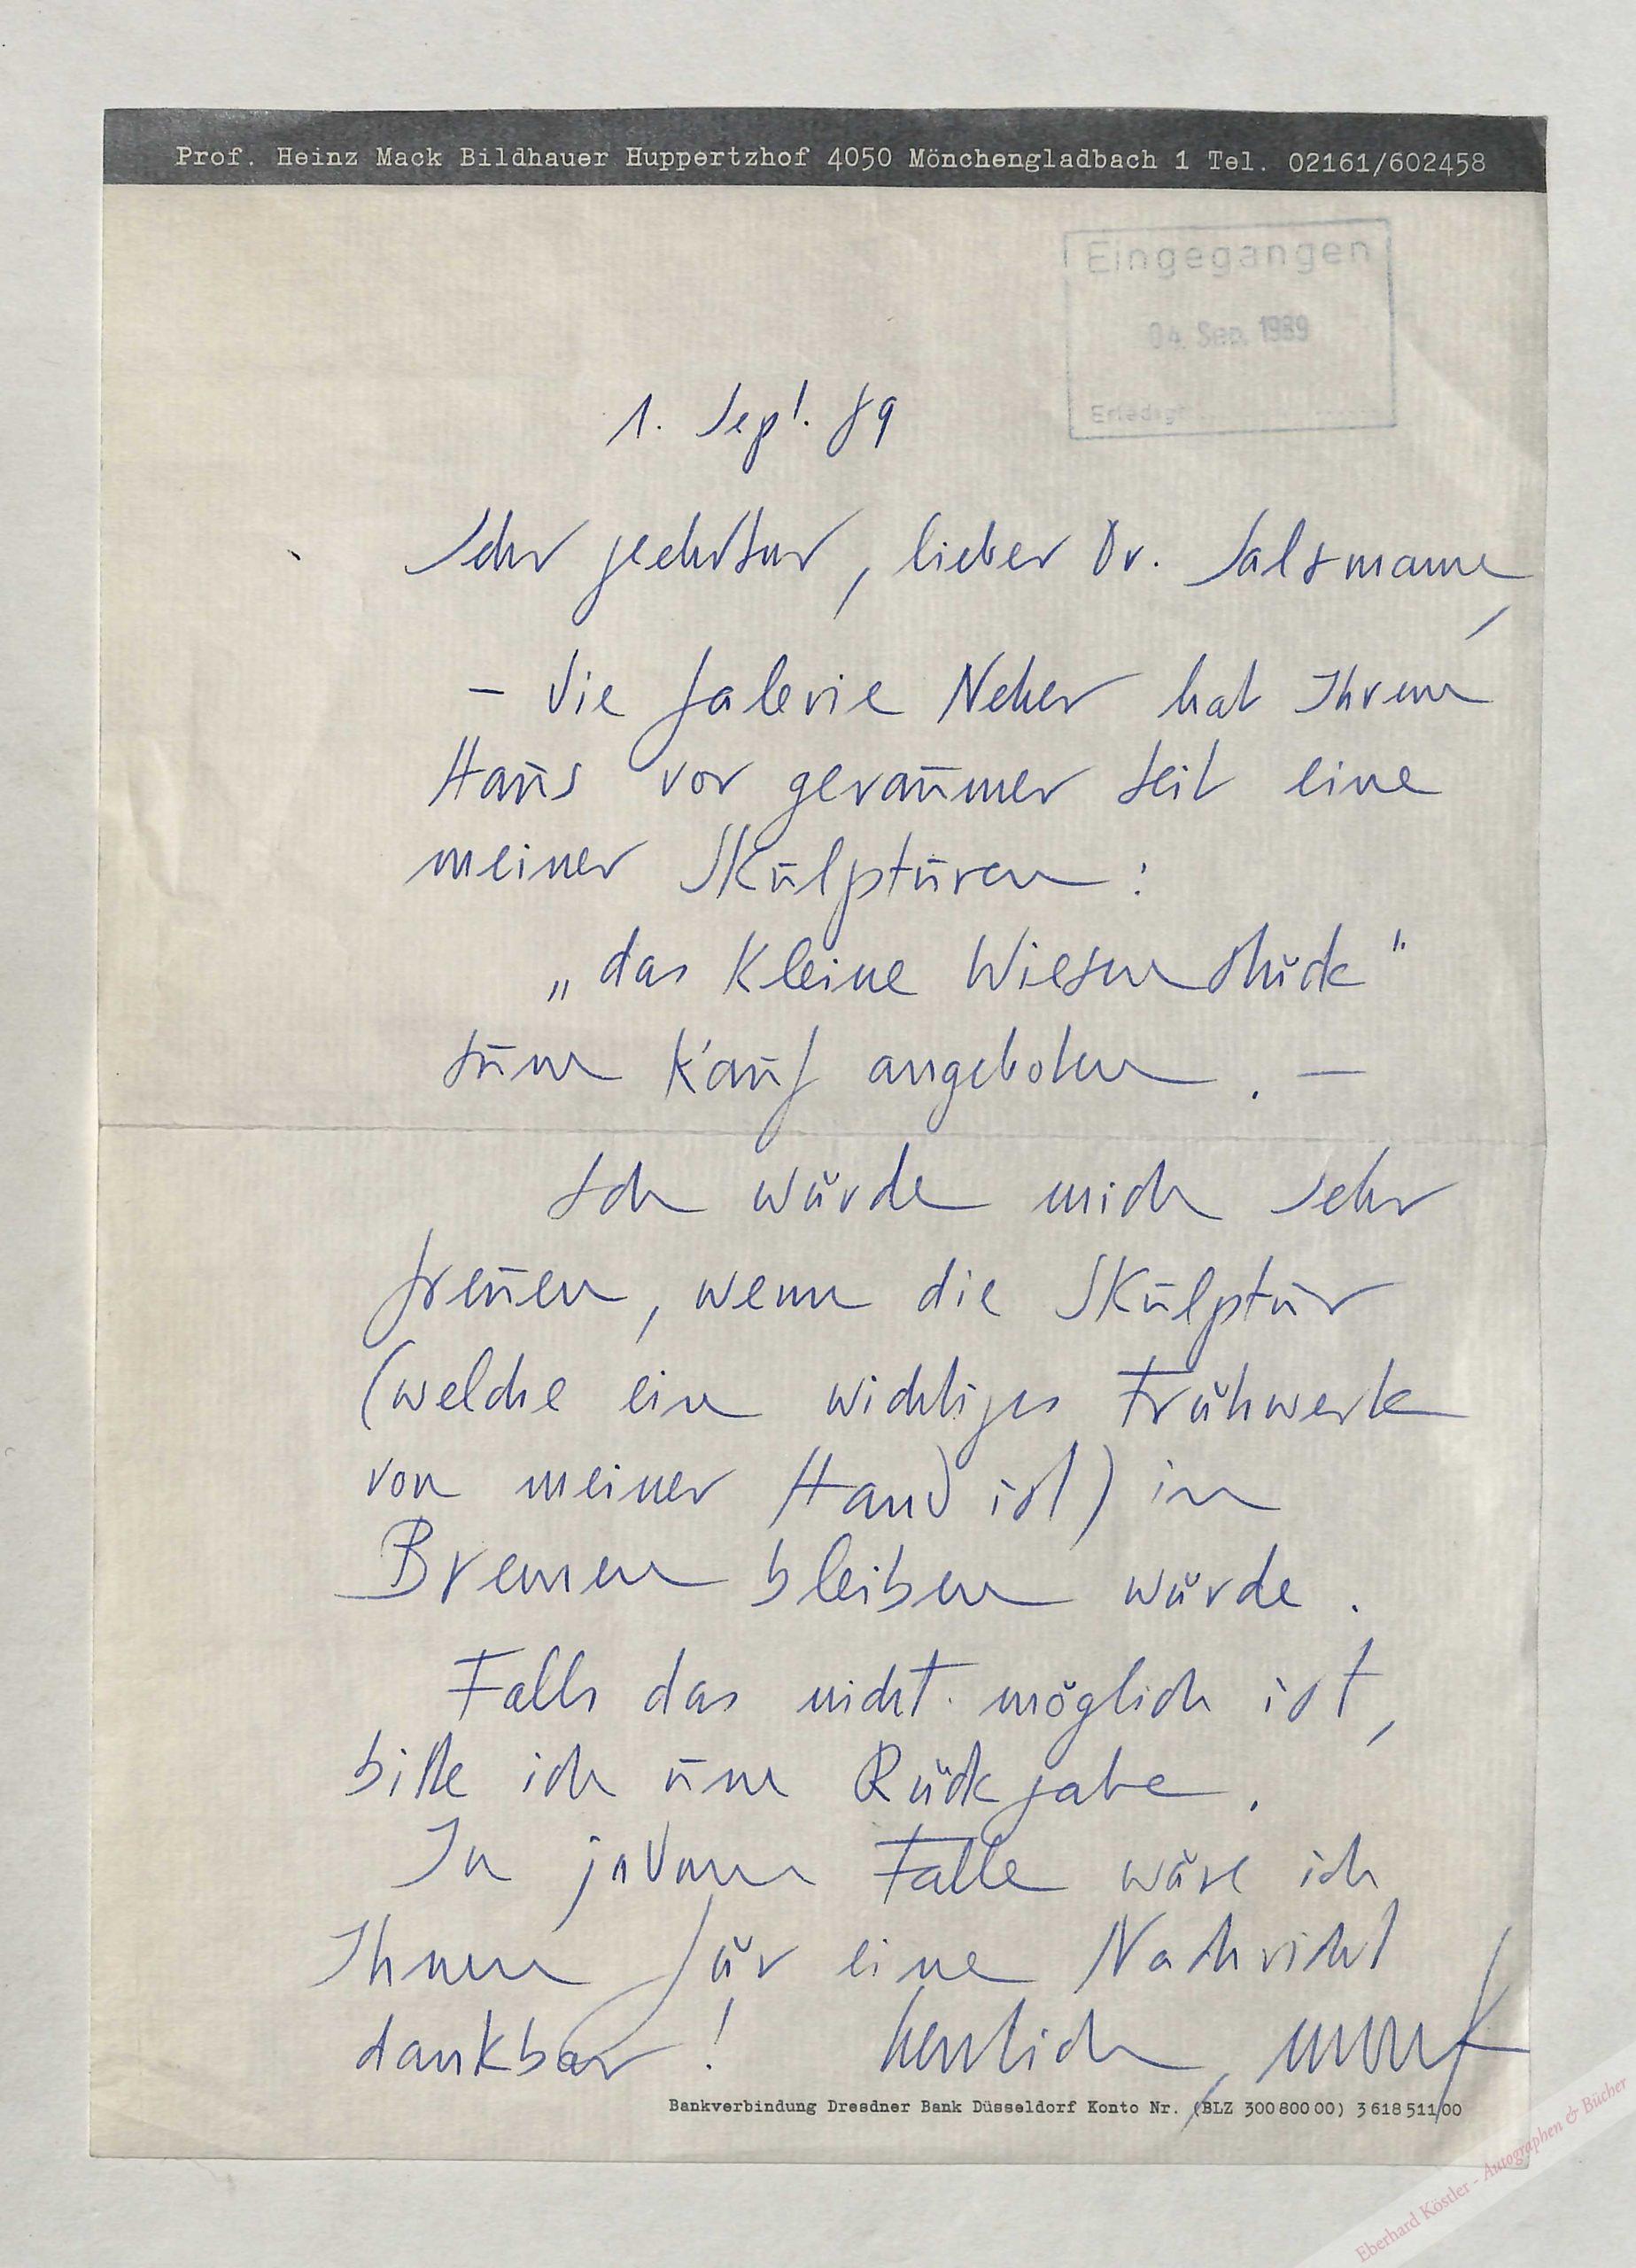 Prof. Heinz Mack Bildhauer Huppertzhof 4050 Mönchengladbach 1 Tel. 02161/602458
Eingegangen
04. Sep. 1989
Erledigt
1. Sept. 89
Sehr geehrter, lieber Dr. Salzmann,
- die Galerie Neher hat Ihrem
Haus vor geraumer Zeit eine
meiner Skulpturen :
„das Kleine Wiesenstück"
zum Kauf angeboten. —
Ich würde mich sehr
freuen, wenn die Skulptur
(welche ein wichtiges Frühwerk
von meiner Hand ist) in
Bremen bleiben würde.
Falls das nicht möglich ist,
bitte ich um Rückgabe.
In jedem Falle wäre ich
Ihnen für eine Nachricht
dankbar! herzlich, Mack
Bankverbindung Dresdner Bank Düsseldorf Konto Nr. (BLZ 300 800 00) 3 618 511 00
Eberhard Köstler - Autographen & Bücher